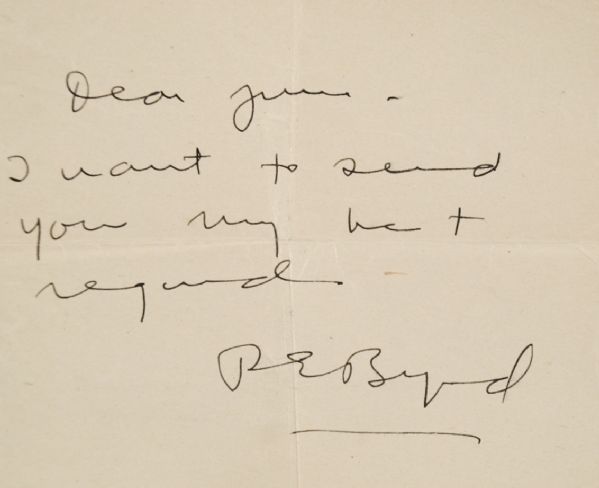 Dear June -
I want to send
you my best
regards.
R E Byrd